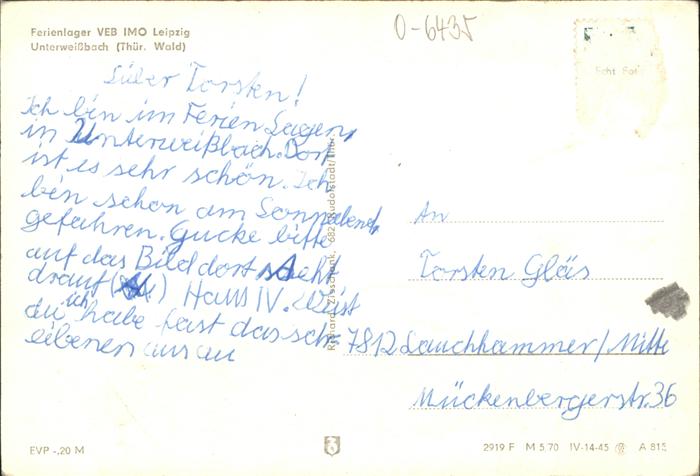 Ferienlager VEB IMO Leipzig
Unterweißbach (Thür. Wald)
0-6435
Echt Fot
Lieber Torsten!
Ich bin im Ferien Lager,
in Unterweißbach. Dort
ist es sehr schön. Ich
bin schon am Sonnabend,
gefahren. Gucke bitte
auf das Bild dort steht
drauf ( ) Haus IV. Weist
du ich habe fast das sch
eibenen aus au
An
Torsten Gläs
7812 Lauchhammer/Mitte
Mückenbergerstr. 36
EVP -,20 M
2919 F M 5,70 IV-14-45 A 815